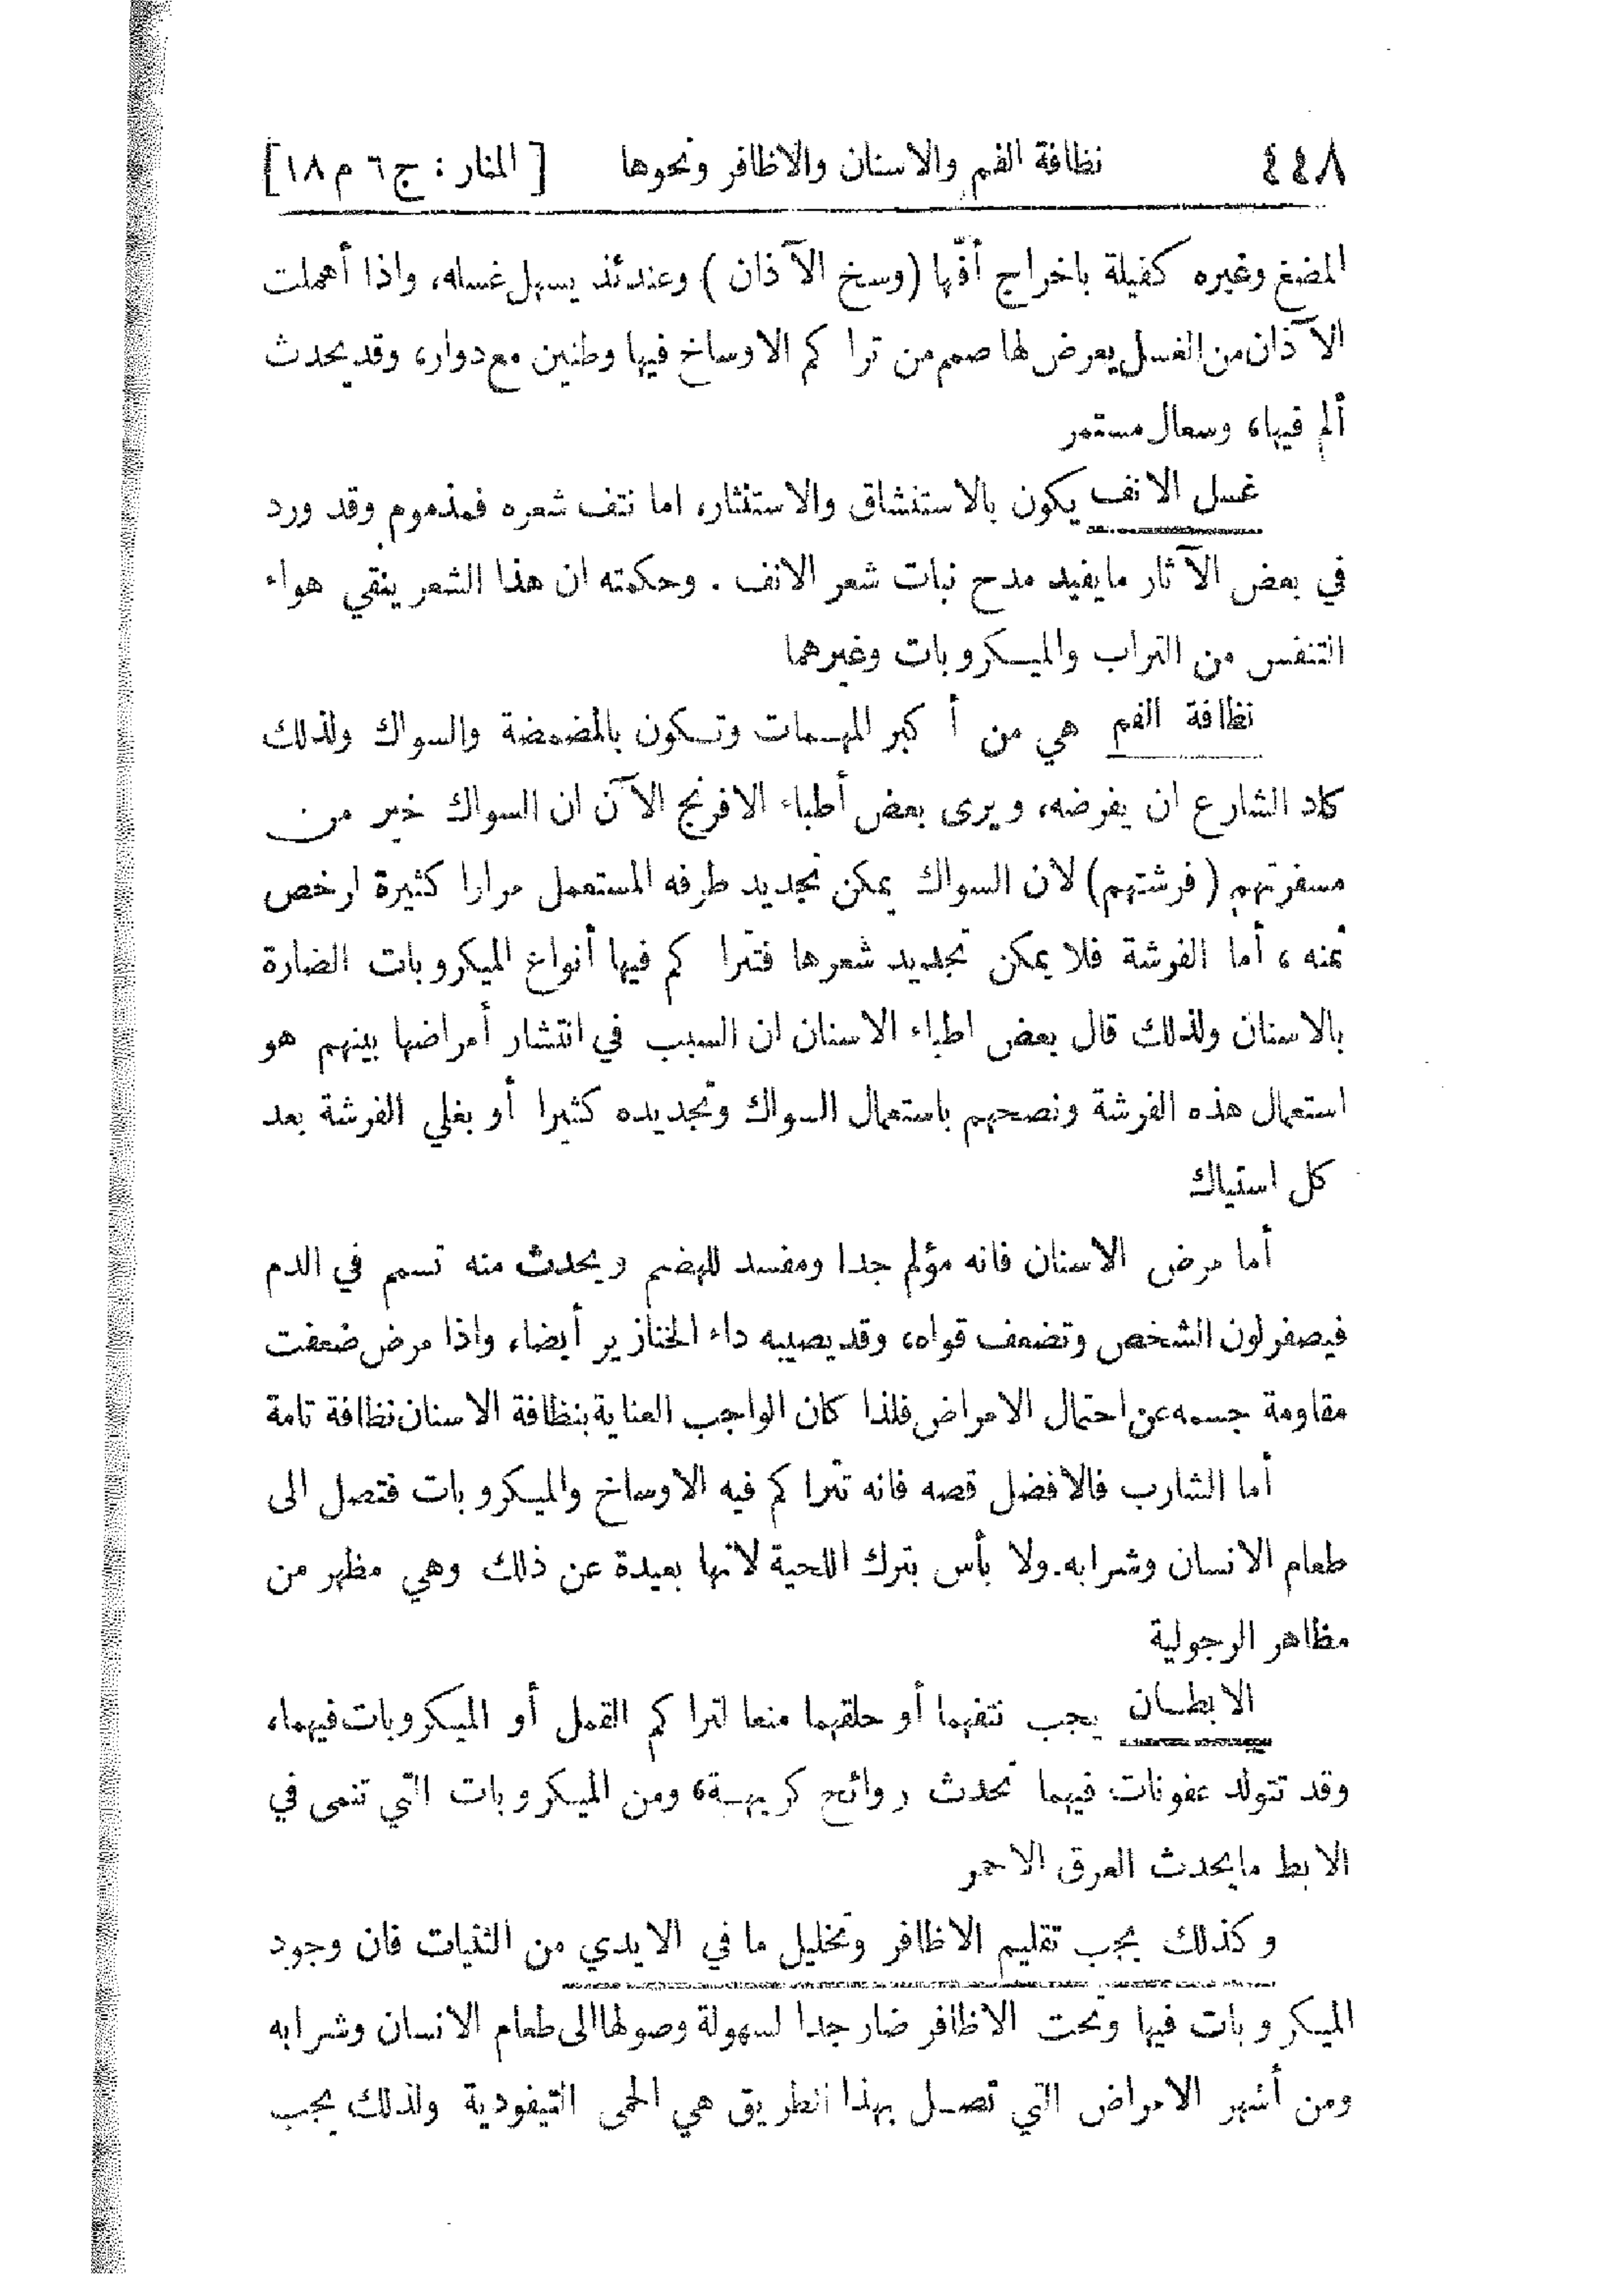 ٤٤٨ نظافة الفم والاسنان والاظافر ونحوها [ المنار : ج ٦ م ١٨ ]
المضغ وغيره كفيلة باخراج أفّها (وسخ الآذان ) وعندئذ يسهل غسله، واذا أهملت
الآذان من الغسل يعرض لها صمم من تراكم الاوساخ فيها وطنين مع دوار، وقد يحدث
ألم فيها، وسعال مستمر
غسل الانف يكون بالاستنشاق والاستنثار، اما نتف شعره فمذموم وقد ورد
في بعض الآثار ما يفيد مدح نبات شعر الانف . وحكمته ان هذا الشعر ينقي هواء
التنفس من التراب والميكروبات وغيرهما
نظافة الفم هي من أكبر المهمات وتكون بالمضمضة والسواك ولذلك
كاد الشارع ان يفرضه، ويرى بعض أطباء الافرنج الآن ان السواك خير من
مسفرتهم (فرشتهم) لان السواك يمكن تجديد طرفه المستعمل مرارا كثيرة لرخص
ثمنه ، أما الفرشة فلا يمكن تجديد شعرها فتتراكم فيها أنواع الميكروبات الضارة
بالاسنان ولذلك قال بعض اطباء الاسنان ان السبب في انتشار أمراضها بينهم هو
استعمال هذه الفرشة ونصحهم باستعمال السواك وتجديده كثيرا أو بغلي الفرشة بعد
كل استياك
أما مرض الاسنان فانه مؤلم جدا ومفسد للهضم ويحدث منه تسمم في الدم
فيصفر لون الشخص وتضعف قواه، وقد يصيبه داء الخنازير أيضا، واذا مرض ضعفت
مقاومة جسمه عن احتمال الامراض فلذا كان الواجب العناية بنظافة الاسنان نظافة تامة
أما الشارب فالافضل قصه فانه تتراكم فيه الاوساخ والميكروبات فتصل الى
طعام الانسان وشرابه. ولا بأس بترك اللحية لانها بعيدة عن ذلك وهي مظهر من
مظاهر الرجولية
الابطان يجب نتفهما أو حلقهما منعا لتراكم القمل أو الميكروبات فيهما،
وقد تتولد عفونات فيهما تحدث روائح كريهة، ومن الميكروبات التي تنمى في
الابط ما يحدث العرق الاحمر
وكذلك يجب تقليم الاظافر وتخليل ما في الايدي من الثنيات فان وجود
الميكروبات فيها وتحت الاظافر ضار جدا لسهولة وصولها الى طعام الانسان وشرابه
ومن أشهر الامراض التي تصل بهذا الطريق هي الحمى التيفودية ولذلك يجب